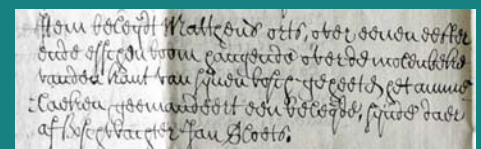 Item beleydt Mattheus orts, over eenen eecker
ende esschen boom hangende over de molenbeke
vanden kant van sijnen bosch geheeten het amme
laeken geemandeert een beleyde, sijnde daer
af boschwachter Jan Sloets.